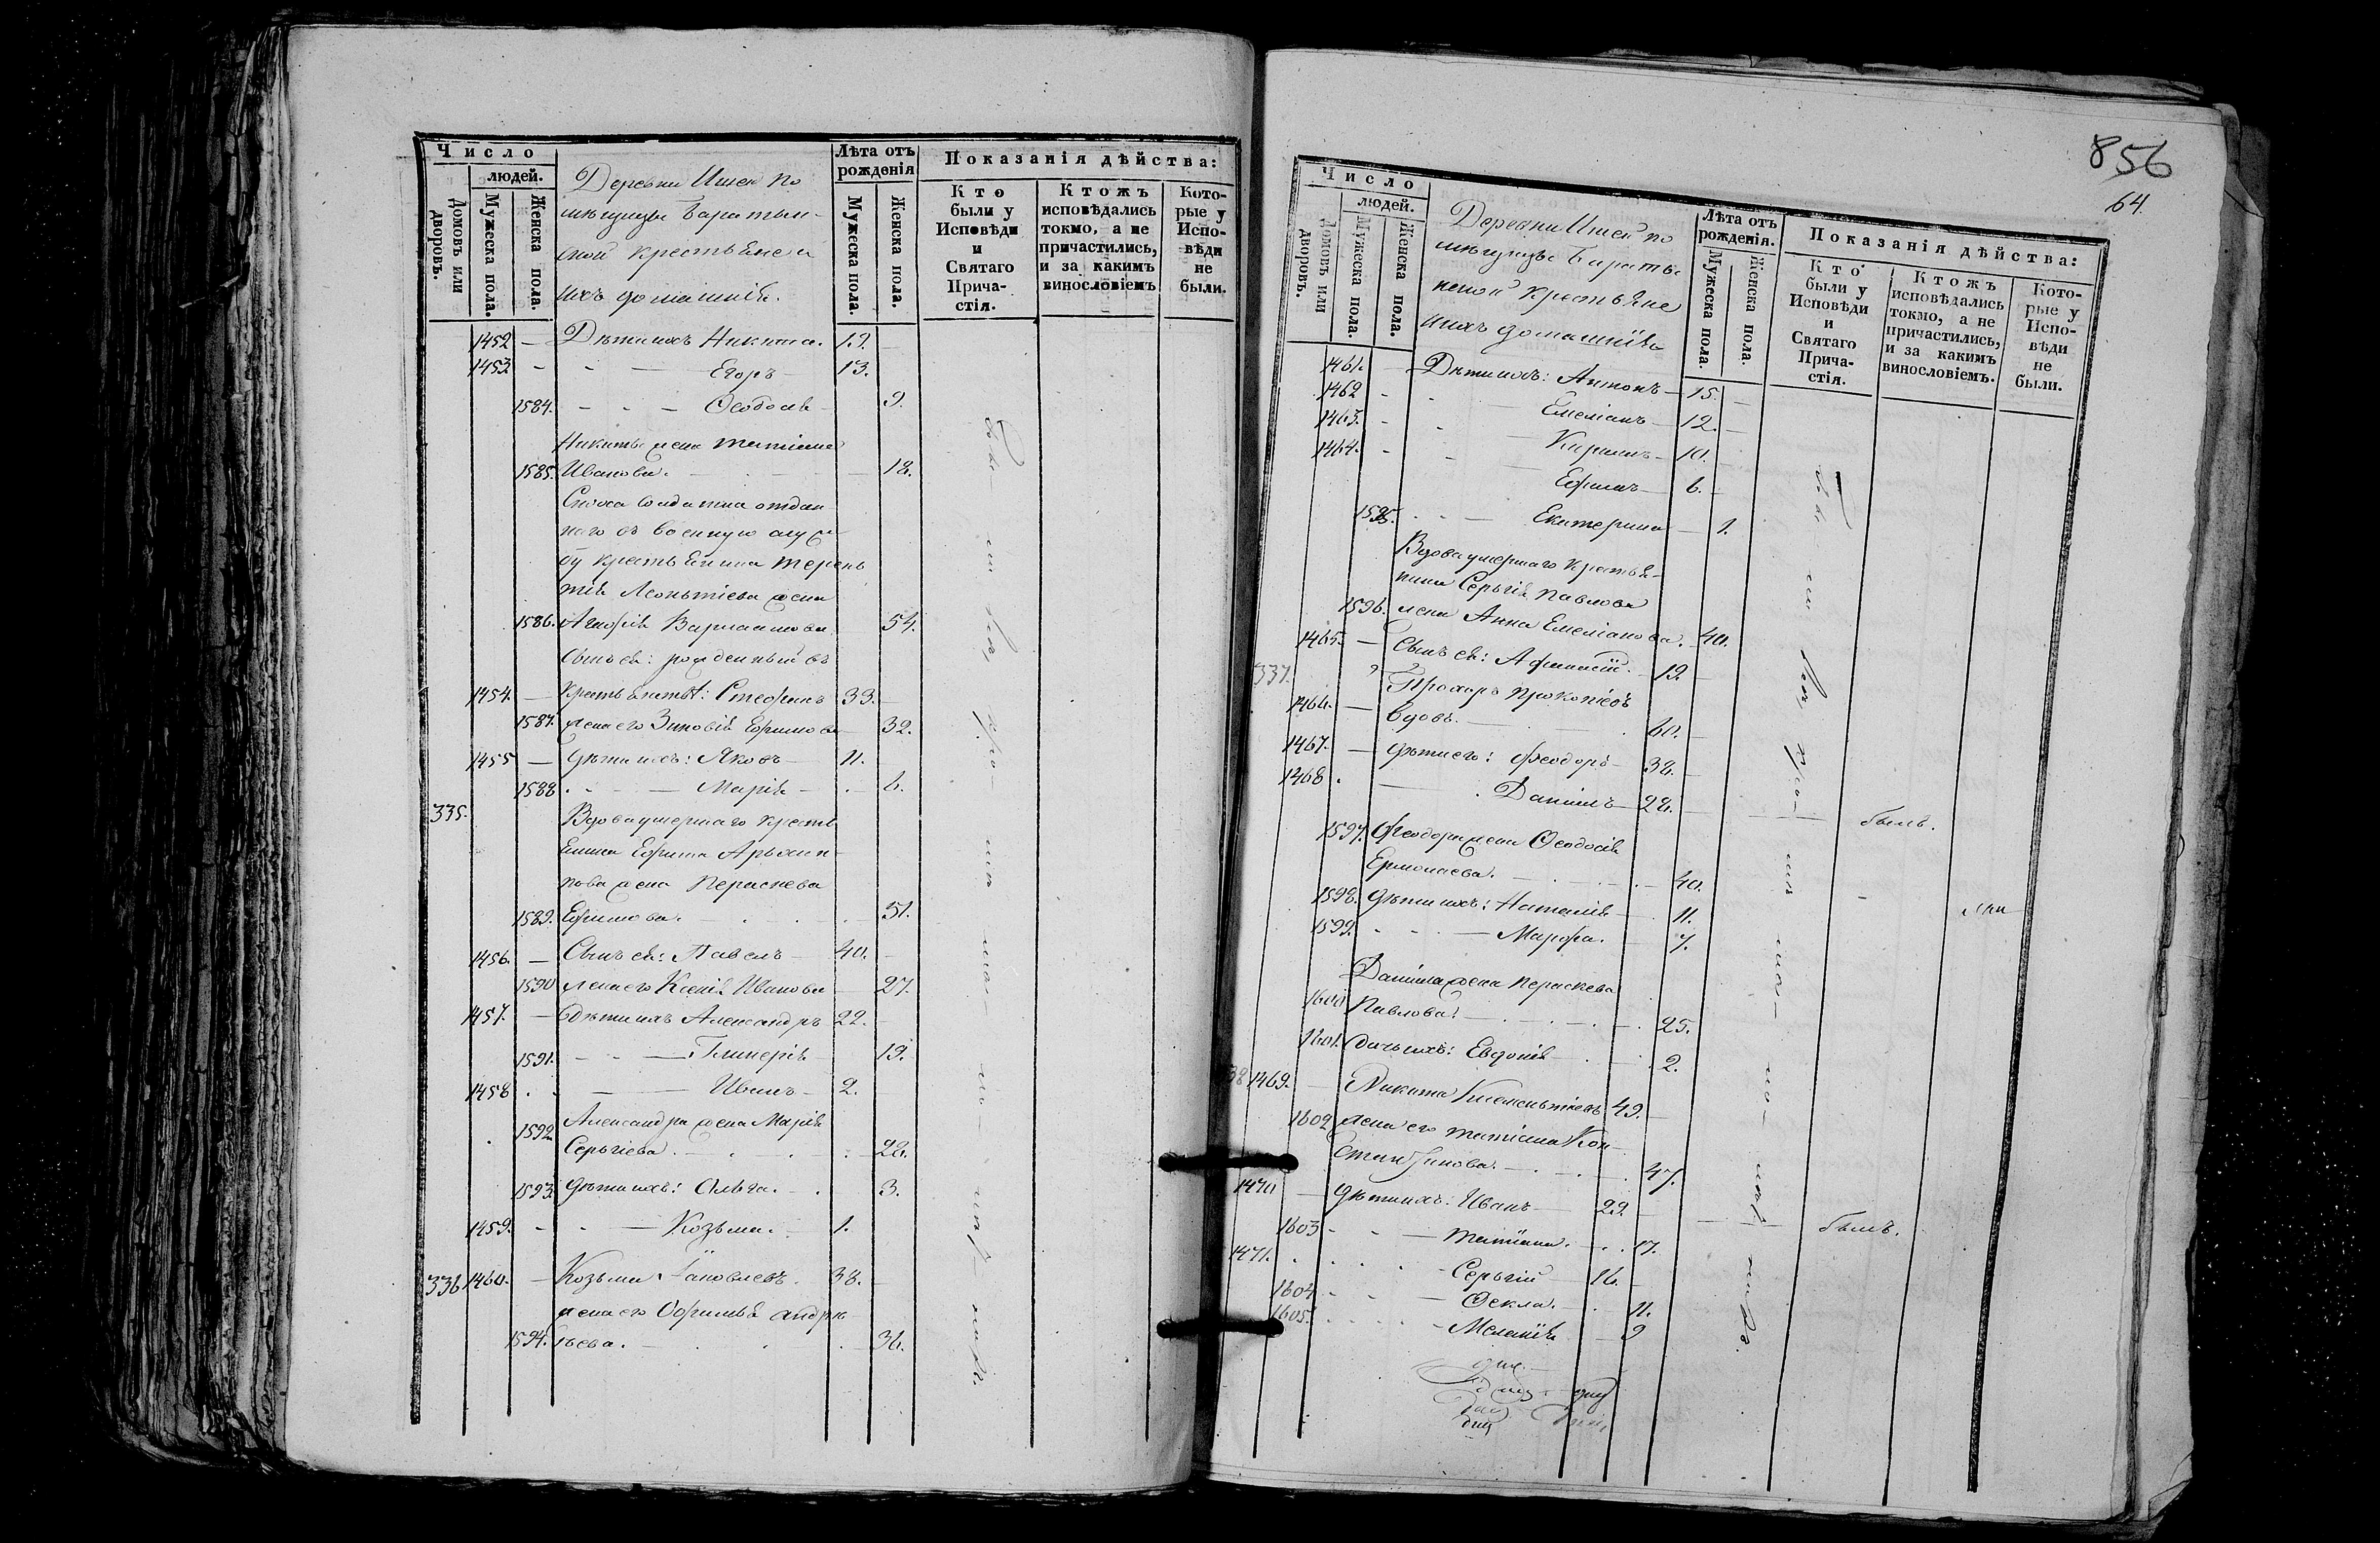 Число
людей.
Домовъ или дворовъ.
Мужеска пола.
Женска пола.
Деревни Ишеи по
мѣщицы Баратын-
ской крестьяне и
ихъ домашнія.
Лѣта отъ
рожденія
Мужеска пола.
Женска пола.
Показанія дѣйства:
Кто
были у
Исповѣди
и
Святаго
Прича-
стія.
Ктожъ
исповѣдались
токмо, а не
причастились,
и за какимъ
винословіемъ
Кото-
рые у
Испо-
вѣди
не
были.
1452 — Дѣти ихъ Никита. 19.
1453. - - — Егоръ — 13.
1584. - - — Ѳеодосія 9.
Никиты жена Татіана
1585. Иванова. 18.
Снова солдатка отдан
наго въ военную служ
бу крестьянина Терень
тія Леонтіева жена
1586. Агафія Варлаамова 54.
Сынъ ея: рожденный въ
1454. — крестьянствѣ: Стефанъ 33.
1587. жена его Зиновія Ефимова 32.
1455 — дѣти ихъ: Яковъ — 11.
1588 — Марія — 6.
335. Вдова умершаго кресть
янина Ефима Архип
пова жена Параскева
1589. Ефимова. 51.
1456. — Сынъ ея: Павелъ 40.
1590 жена его Ксенія Иванова 27.
1457. — Дѣти ихъ Александръ 22.
1591. — Гликерія 19.
1458 — Иванъ 2.
1592 Александра жена Марія
Сергіева. 22.
1593. дѣти ихъ: Ольга. 3.
1459. - - — Козьма. 1.
336 1460. — Козьма Яковлевъ. 38.
жена его Евфимія Андре
1594. ьева. 36.
856
64.
Число
людей.
Домовъ или дворовъ.
Мужеска пола.
Женска пола.
Деревни Ишеи по
мѣщицы Бараты
нской крестьяне
и ихъ домашнія
Лѣта отъ
рожденія.
Мужеска пола.
Женска пола.
Показанія дѣйства:
Кто
были у
Исповѣди
и
Святаго
Прича-
стія.
Ктожъ
исповѣдались
токмо, а не
причастились,
и за какимъ
винословіемъ.
Кото-
рые у
Испо-
вѣди
не
были.
1461. — Дѣти ихъ: Антонъ — 15.
1462 - - — Емеліанъ — 12.
1463. - - — Кирилъ — 10.
1464. - - — Ефимъ — 6.
1595. - - — Екатерина — 1.
Вдова умершаго крестья-
нина Сергія Павлова
1596. жена Анна Емеліанова. 40.
1465. — Сынъ ея: Афанасій. 19.
337. Прохоръ Прокопіевъ
1466. — вдовъ. 60.
1467. — дѣти его: Феодоръ 38.
1468 — Даніилъ 28. былъ.
1597. Феодора жена Ѳеодосія
Ермолаева. 40.
1598. дѣти ихъ: Наталія 11.
1599. — Марфа. 7.
Даніила жена Параскева
1600 Павлова. 25.
1601. дочь ихъ: Евдокія 2.
38 1469. — Никита Климентіевъ 49.
1602 жена его Татіана Кон-
стантинова. 47.
1470 — дѣти ихъ: Иванъ — 29. былъ.
1603 - - — Татіана. 17.
1471. — Сергій 16.
1604 — Ѳекла. 11.
1605. — Меланія 9